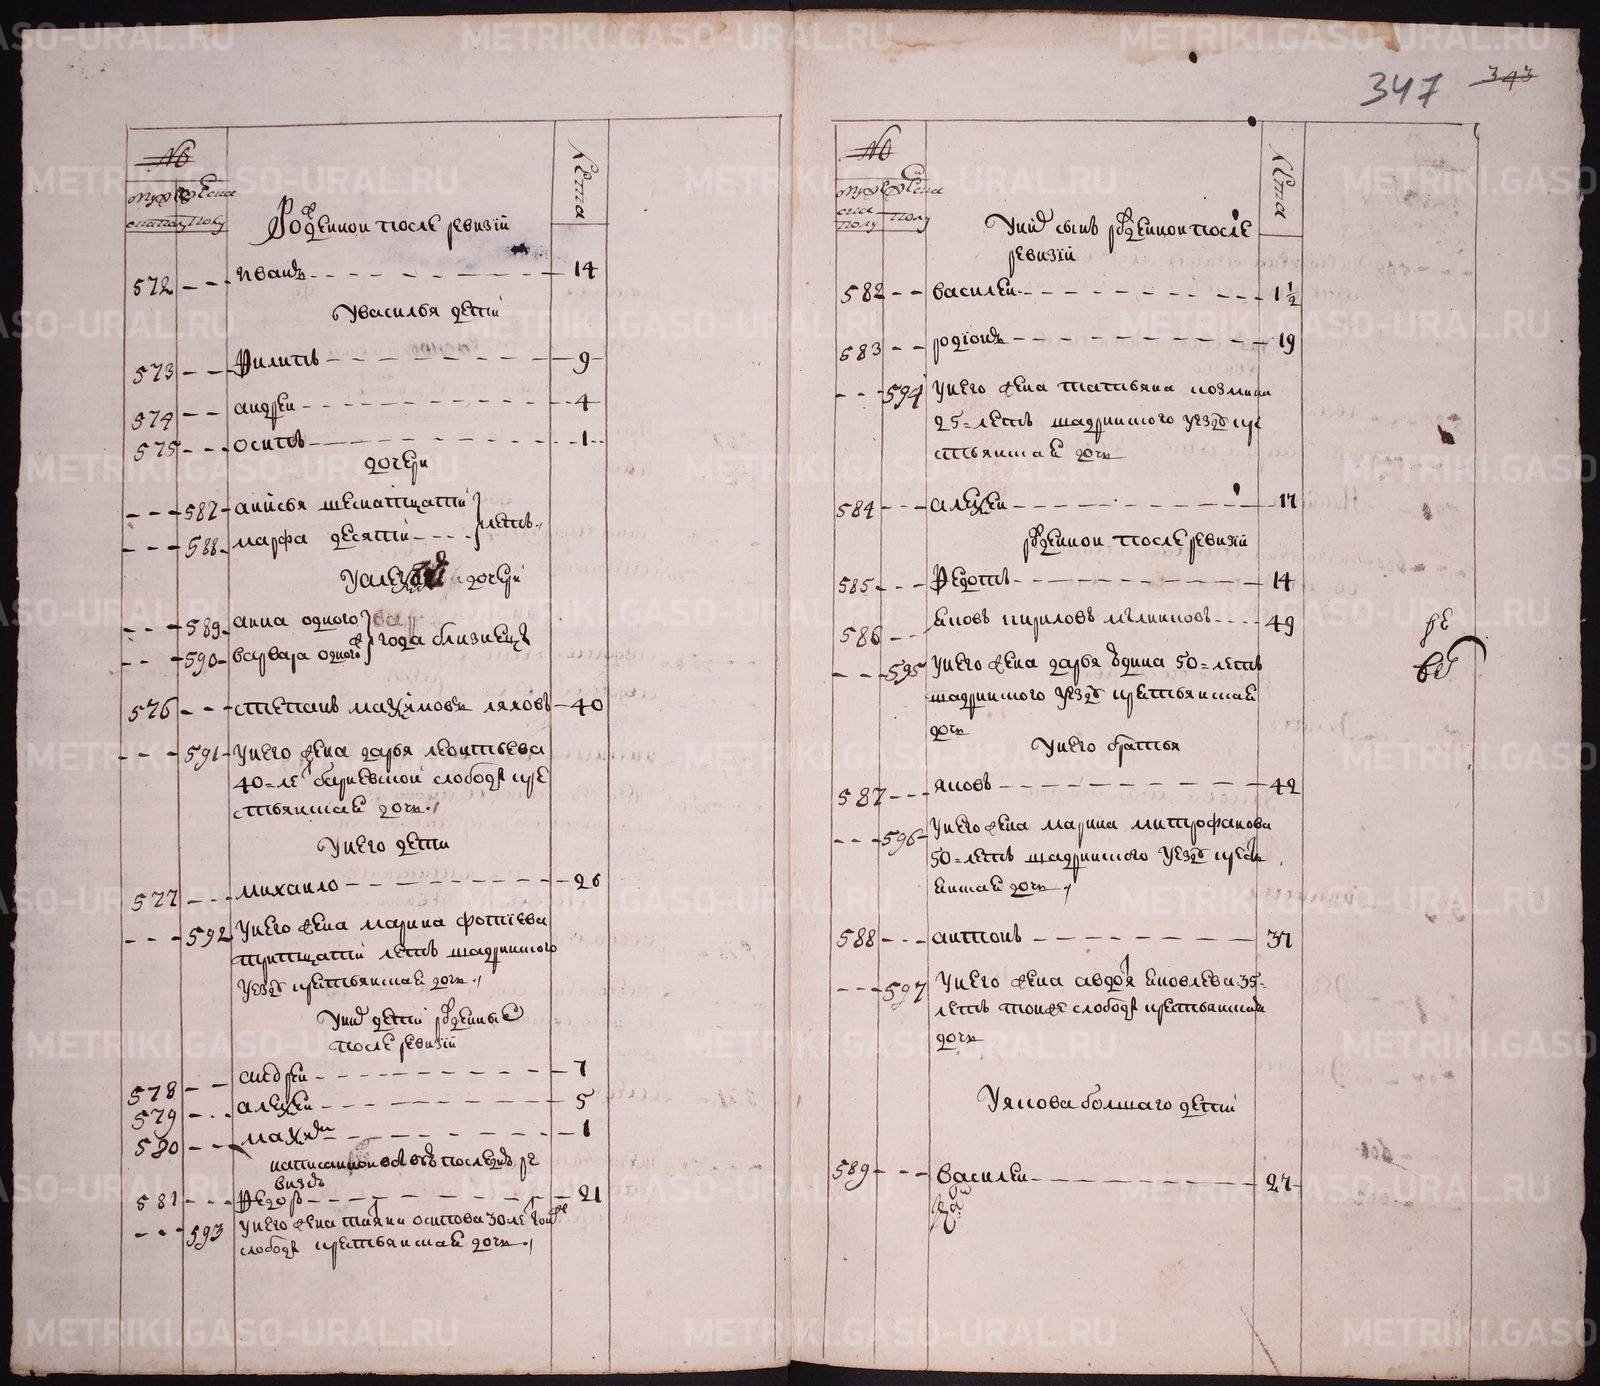 347 343
№
мужеска полу
женска полу
лета
Рожденной после ревизїй
572 иванъ 14
У василья детей
573 Филипъ 9
574 андрей 4
575 осипъ 1
дочери
587 анисья шеснатцати
588 марфа десяти
летъ
У алеѯея дочери
589 анна одного
590 варвара одного
года близнецы
576 степанъ маѯимовъ ляховъ 40
591 У него жена дарья леонтьева
40=ле слободы кре
стьянская дочь
У него дети
577 михаило 26
592 У него жена марина фотїева
тритцати летъ шадринского
уезду крестьянская дочь
У них детей рожденных
после ревизїй
578 андрей 7
579 алеѯей 5
580 маѯим 1
написанной в последнюю ре
визию
581 Федор 21
593 У него жена осипова 30 ле той же
слободы крестьянская дочь
№
мужеска полу
женска полу
лета
У них сынъ рожденной после
ревизїй
582 василей 1 1/2
583 родїонъ 19
594 У него жена татьяна козмина
25=летъ шадринского уезду кре
стьянская дочь
584 алеѯей 17
рожденной после ревизїй
585 Федотъ 14
586 кириловъ мѣлниковъ 49
595 У него жена дарья 50=летъ
шадринского уезду крестьянская
дочь
У него братья
587 яковъ 42
596 У него жена марина митрофанова
50=летъ шадринского уезду кресть
янская дочь
588 антонъ 37
597 У него жена авдотья яковлева 35=
летъ той же слободы крестьянская
дочь
У якова болшаго детей
589 василей 27
METRIKI.GASO-URAL.RU